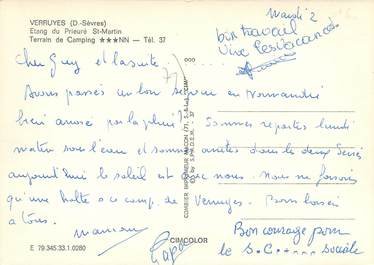 VERRUYES (D.-Sèvres)
Etang du Prieuré St-Martin
Terrain de Camping ★★★NN — Tél. 37
Mardi 2
bon travail
Vive les vacances
Cher Guy et la suite.
Avons passés un bon séjour en Normandie
bien arrosé par la pluie. Sommes repartis lundi
matin sous l'eau et sommes arrivés dans les deux Sèvres
aujourd'hui le soleil est avec nous. Nous ne faisons
qu'une halte à ce camp de Verruyes. Bons baisers
à tous.
maman
Papa
Bon courage pour
le S.C..... sociale
COMBIER IMPRIMEUR MACON (71, S.-&-L.) "CIM"
E 79.345.33.1.0280
CIMCOLOR